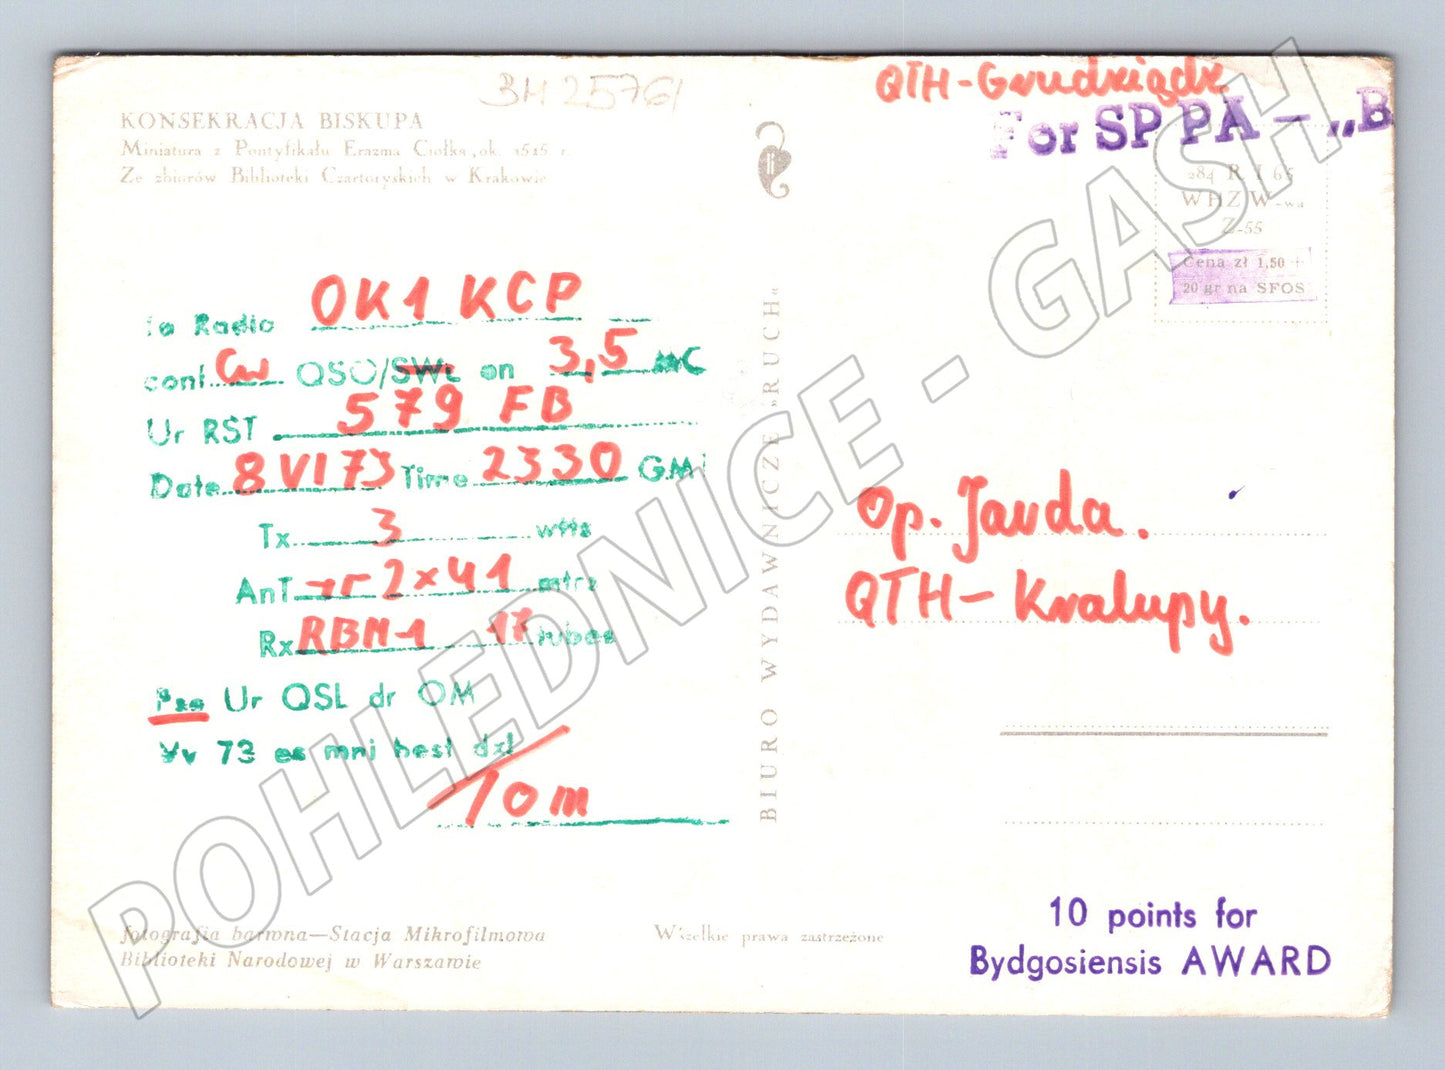 BH 25761
QTH-Grudziądz
For SP PA – „B
KONSEKRACJA BISKUPA
Miniatura z Pontyfikału Erazma Ciołka, ok. 1515 r.
Ze zbiorów Biblioteki Czartoryskich w Krakowie
284 R I 65
WHZ W-wa
Z-55
Cena zł 1,50 +
20 gr na SFOS
To Radio OK1 KCP
conf. CW QSO/SWL on 3,5 MC
Ur RST 579 FB
Date 8 VI 73 Time 2330 GMT
Tx 3 wtts
AnT 2×41 mtrs
Rx RBM-1 17 tubes
Pse Ur QSL dr OM
Vy 73 es mni best dx!
Tom
BIURO WYDAWNICZE „RUCH“
Op. Jarda.
QTH - Kralupy.
fotografia barwna—Stacja Mikrofilmowa
Biblioteki Narodowej w Warszawie
Wszelkie prawa zastrzeżone
10 points for
Bydgosiensis AWARD
POHLEDNICE - GASH